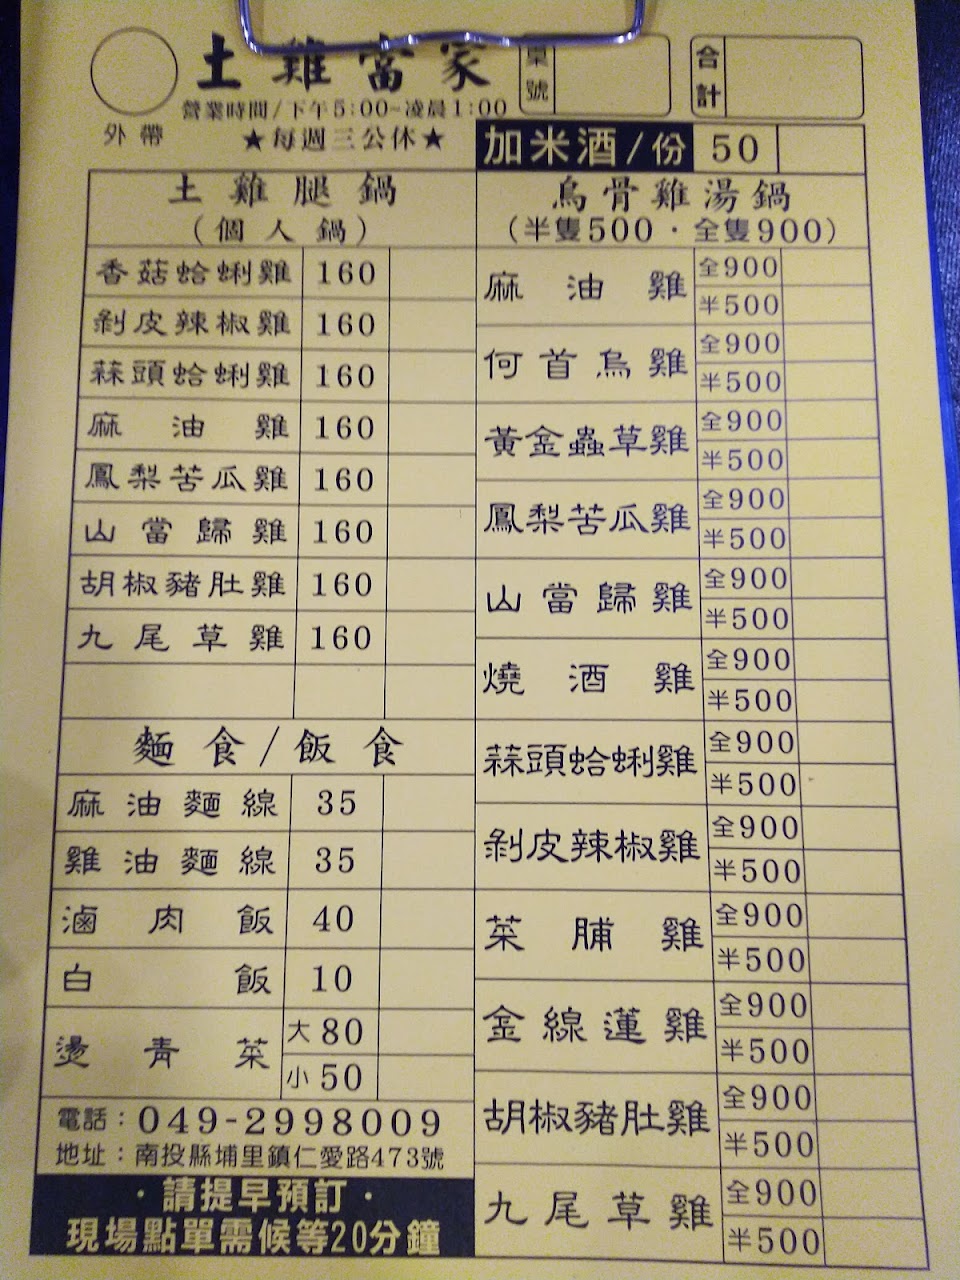 土雞當家
營業時間/下午5:00~凌晨1:00
外帶
★每週三公休★
桌號
合計
加米酒/份 50
土雞腿鍋
(個人鍋)
香菇蛤蜊雞 160
剝皮辣椒雞 160
蒜頭蛤蜊雞 160
麻油雞 160
鳳梨苦瓜雞 160
山當歸雞 160
胡椒豬肚雞 160
九尾草雞 160
麵食/飯食
麻油麵線 35
雞油麵線 35
滷肉飯 40
白飯 10
燙青菜 大80
小50
電話：049-2998009
地址：南投縣埔里鎮仁愛路473號
·請提早預訂·
現場點單需候等20分鐘
烏骨雞湯鍋
(半隻500·全隻900)
麻油雞 全900
半500
何首烏雞 全900
半500
黃金蟲草雞 全900
半500
鳳梨苦瓜雞 全900
半500
山當歸雞 全900
半500
燒酒雞 全900
半500
蒜頭蛤蜊雞 全900
半500
剝皮辣椒雞 全900
半500
菜脯雞 全900
半500
金線蓮雞 全900
半500
胡椒豬肚雞 全900
半500
九尾草雞 全900
半500